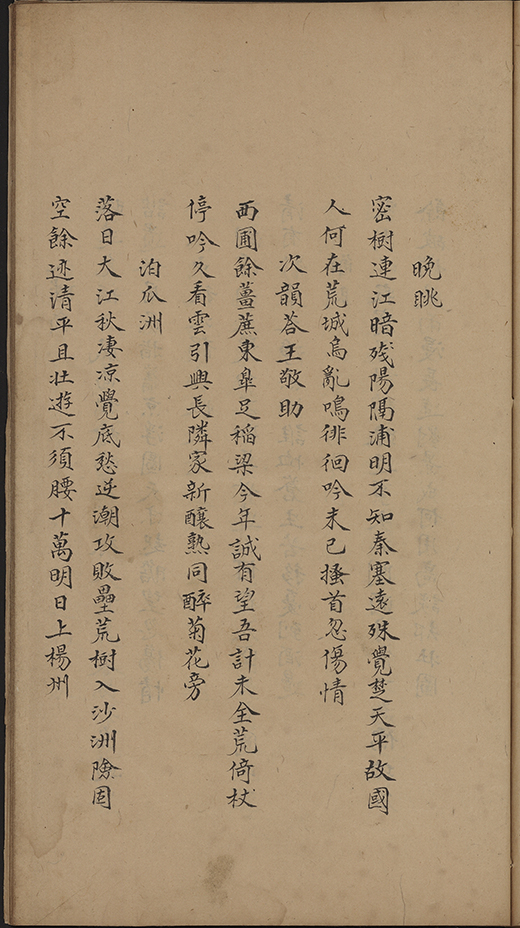 晚眺
密樹連江暗殘陽隔浦明不知秦塞遠殊覺楚天平故國
人何在荒城烏亂鳴徘徊吟未已搔首忽傷情
次韻答王敬助
西圃餘薑蔗東皐足稻梁今年誠有望吾計未全荒倚杖
停吟久看雲引興長隣家新釀熟同醉菊花旁
泊瓜洲
落日大江秋淒凉覺底愁逆潮攻敗壘荒樹入沙洲險固
空餘迹清平且壮遊不須腰十萬明日上楊州